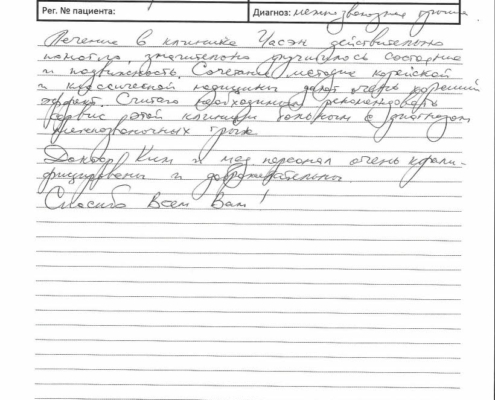 Рег. № пациента: Диагноз: межпозвоночная грыжа
Лечение в клинике Часэн действительно
помогло, значительно улучшилось состояние
и подвижность. Сочетание методик корейской
и классической медицины дают очень хороший
эффект. Считаю необходимым рекомендовать
сервис этой клиники больным с диагнозом
межпозвоночных грыж.
Доктор Ким и мед. персонал очень квали-
фицированы и доброжелательны
Спасибо Всем Вам!